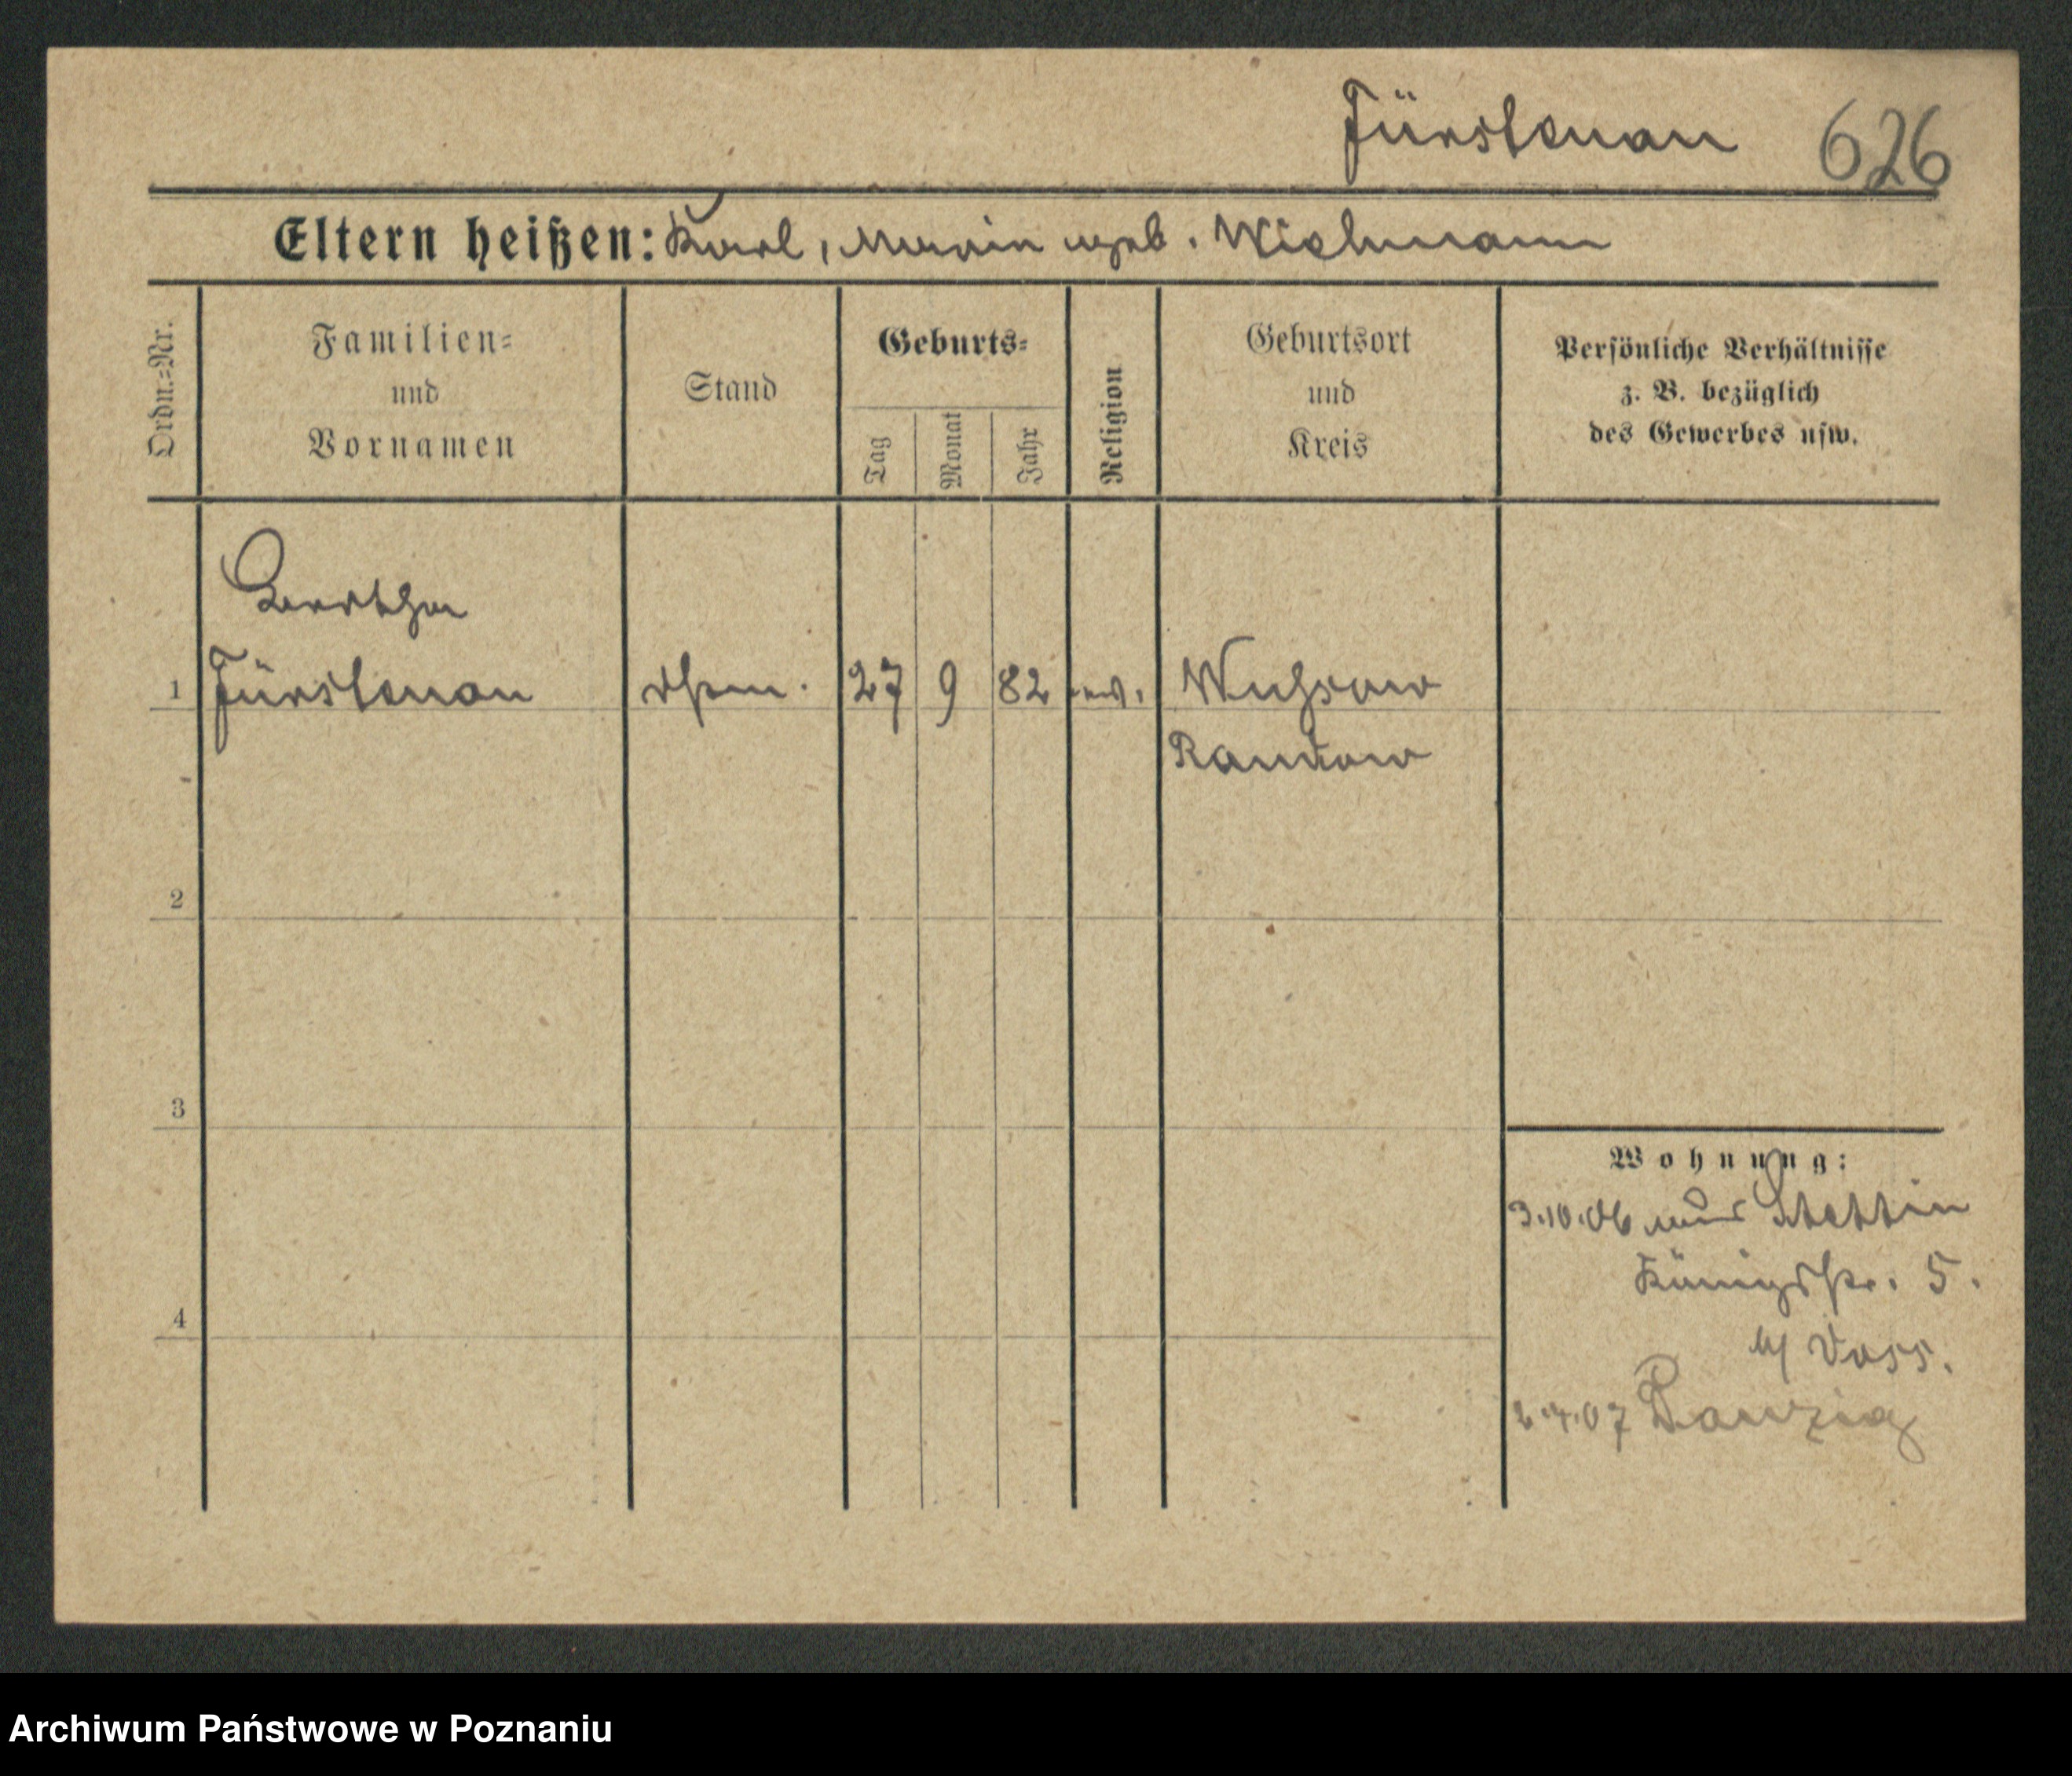 Fürstenau 626
Eltern heißen: Karl, Marie geb. Wichmann
Ordn.=Nr.
Familien=
und
Vornamen
Stand
Geburts=
Tag
Monat
Jahr
Religion
Geburtsort
und
Kreis
Persönliche Verhältnisse
z. B. bezüglich
des Gewerbes usw.
Bertha
1 Fürstenau 27 9 82 ev.
Randow
2
3
4
Wohnung:
3.10.06 Stettin
Königstr. 5.
b/ Voss.
2.4.07 Danzig
Archiwum Państwowe w Poznaniu